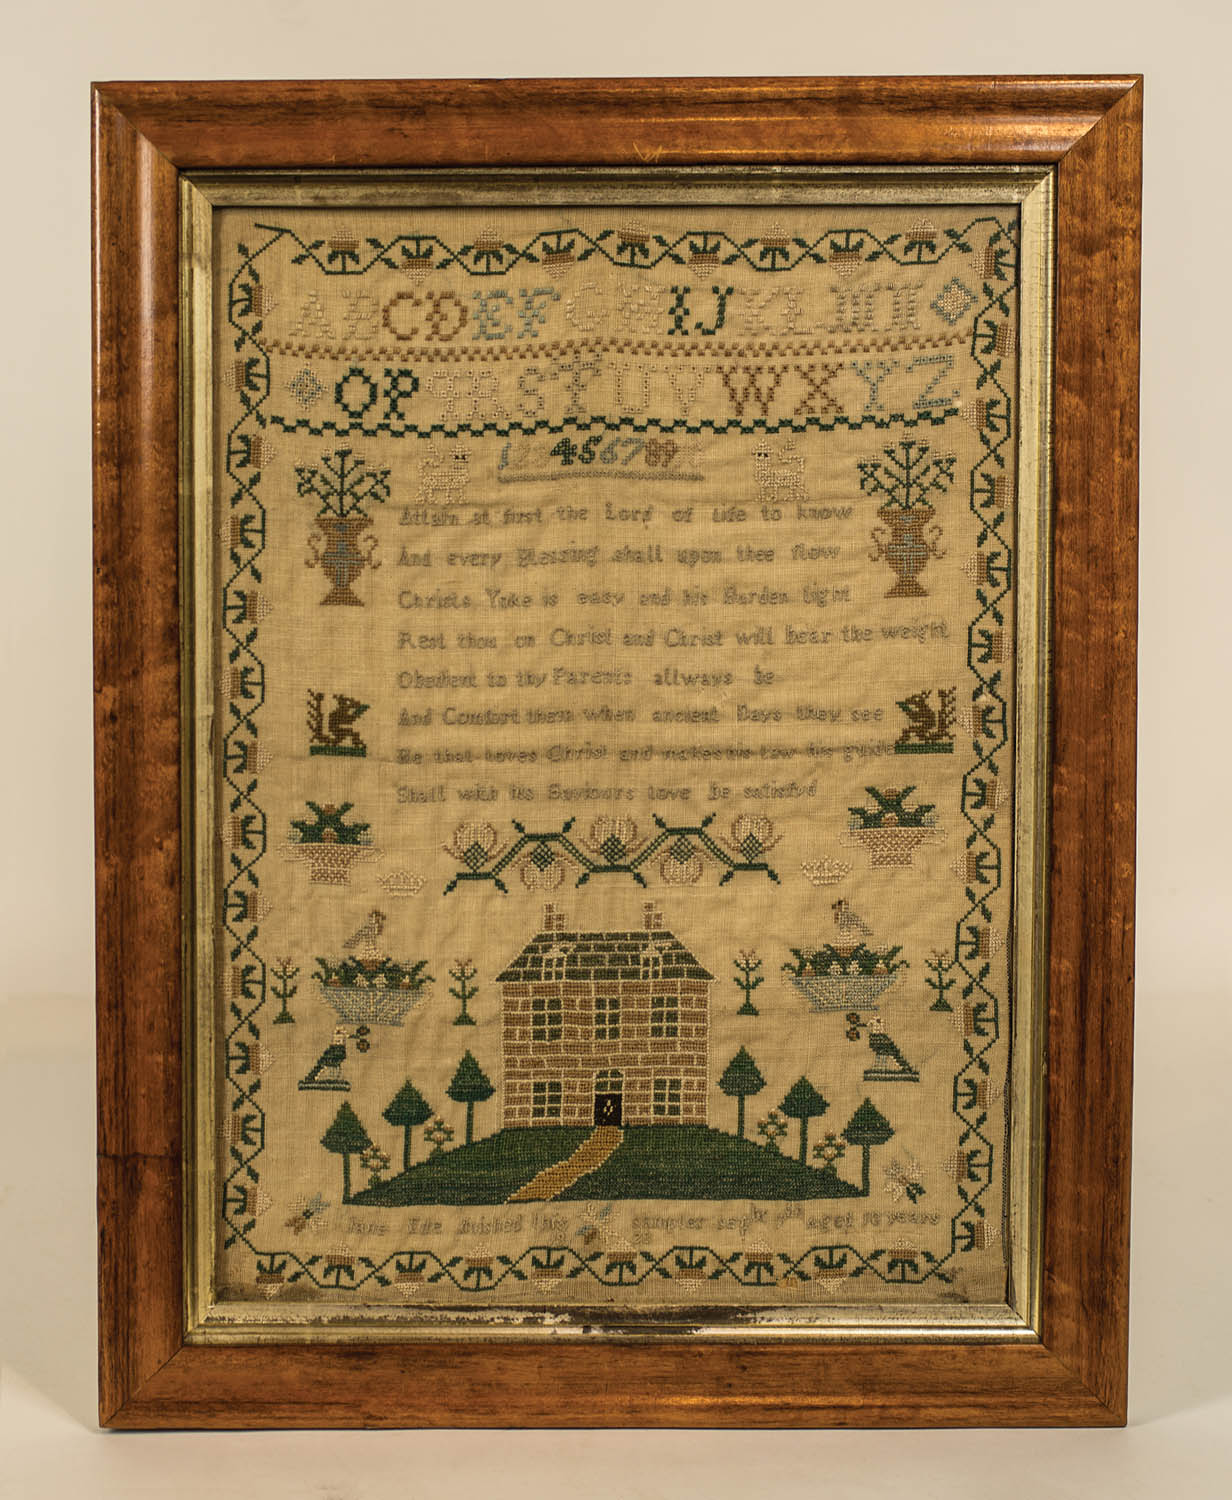 ABCDEFGHIJKLMN
OPQRSTUVWXYZ
123456789
Attain at first the Lord of Life to know
And every Blessing shall upon thee flow
Christs Yoke is easy and his Burden light
Rest thou on Christ and Christ will bear the weight
Obedient to thy Parents allways be
And Comfort them when ancient Days they see
He that loves Christ and makes his law his guide
Shall with his Saviours Love be satisfyd
Jane finished this sampler aged 10 years